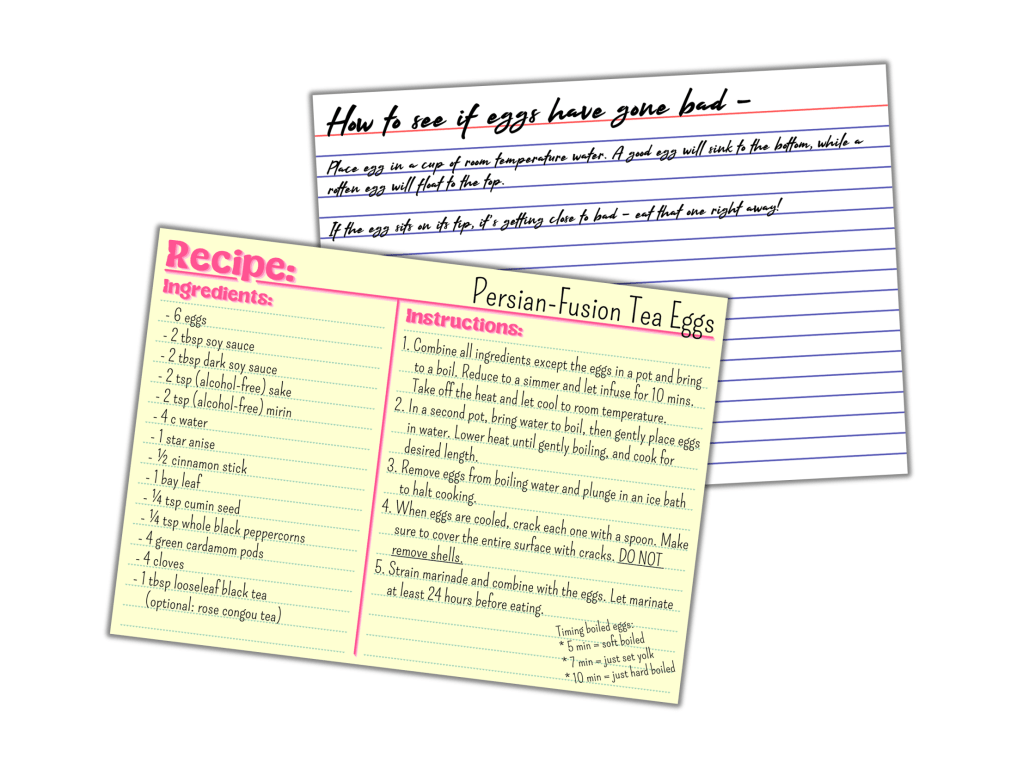 How to see if eggs have gone bad –
Place egg in a cup of room temperature water. A good egg will sink to the bottom, while a
rotten egg will float to the top.
If the egg sits on its tip, it's getting close to bad – eat that one right away!
Recipe:
Persian-Fusion Tea Eggs
Ingredients:
- 6 eggs
- 2 tbsp soy sauce
- 2 tbsp dark soy sauce
- 2 tsp (alcohol-free) sake
- 2 tsp (alcohol-free) mirin
- 4 c water
- 1 star anise
- ½ cinnamon stick
- 1 bay leaf
- ¼ tsp cumin seed
- ¼ tsp whole black peppercorns
- 4 green cardamom pods
- 4 cloves
- 1 tbsp looseleaf black tea
(optional: rose congou tea)
Instructions:
1. Combine all ingredients except the eggs in a pot and bring
to a boil. Reduce to a simmer and let infuse for 10 mins.
Take off the heat and let cool to room temperature.
2. In a second pot, bring water to boil, then gently place eggs
in water. Lower heat until gently boiling, and cook for
desired length.
3. Remove eggs from boiling water and plunge in an ice bath
to halt cooking.
4. When eggs are cooled, crack each one with a spoon. Make
sure to cover the entire surface with cracks. DO NOT
remove shells.
5. Strain marinade and combine with the eggs. Let marinate
at least 24 hours before eating.
Timing boiled eggs:
* 5 min = soft boiled
* 7 min = just set yolk
* 10 min = just hard boiled